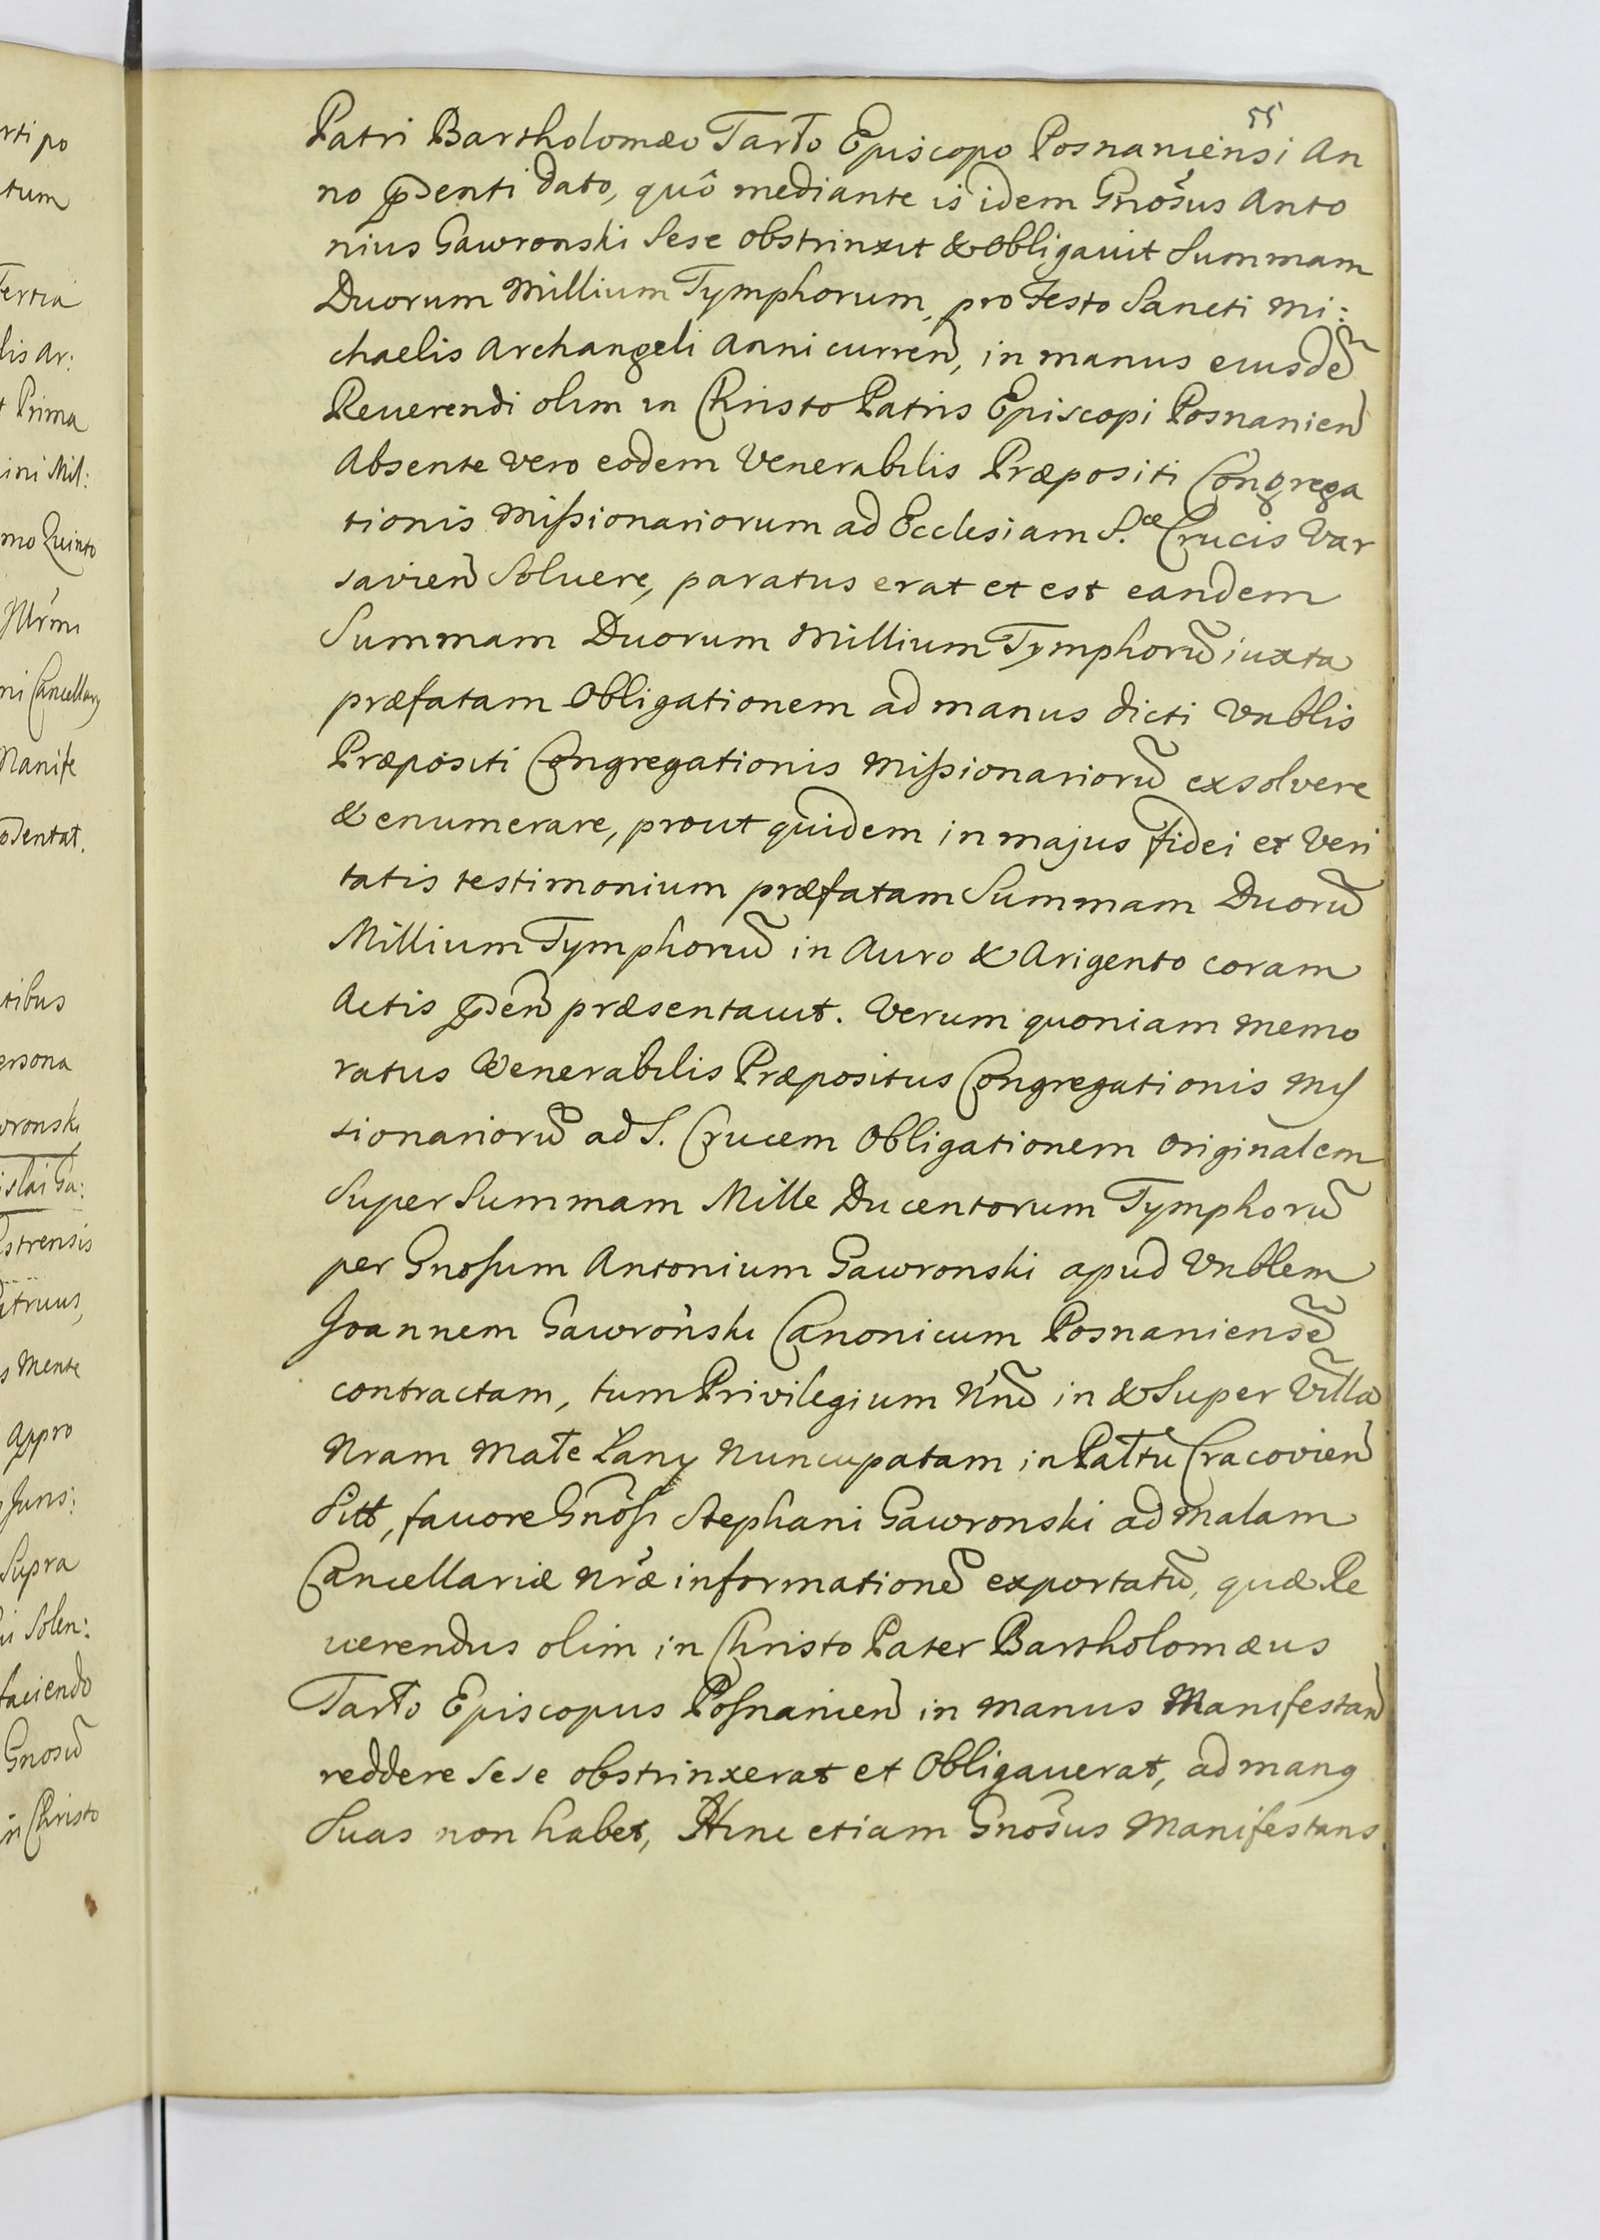 55
Patri Bartholomæo Tarło Episcopo Posnaniensi An
no pñenti dato, quô mediante is idem Gnosus Anto
nius Gawronski Sese obstrinxit & Obligavit Summam
Duorum Millium Tymphorum, pro Festo Sancti Mi:
chaelis Archangeli Anni curreñ, in manus eiusdẽ
Reuerendi olim in Christo Patris Episcopi Posnanieñ
Absente vero eodem Venerabilis Præpositi Congrega
tionis Missionariorum ad Ecclesiam S.cæ Crucis Var
savieñ Soluere, paratus erat et est eandem
Summam Duorum Millium Tymphorũ iuxta
præfatam Obligationem ad manus dicti Vnblis
Præpositi Congregationis Missionariorũ exsolvere
& enumerare, prout quidem in majus fidei et Veri
tatis testimonium præfatam Summam Duorũ
Millium Tymphorũ in Auro & Arigento coram
Actis pñeñ præsentauit. Verum quoniam memo
ratus Venerabilis Præpositus Congregationis Mis
sionariorũ ad S. Crucem Obligationem Originalem
Super Summam Mille Ducentorum Tymphorũ
per Gnosum Antonium Gawronski apud Vnblem
Joannem Gawronski Canonicum Posnaniensẽ
contractam, tum Privilegium Nrũ in & Super Villã
Nram Małe Łany Nuncupatam in Paltũ Cracovieñ
Sitt, favore Gnosi Stephani Gawronski ad malam
Cancellariæ Nræ informationẽ exportatũ, quæ Re
uerendus olim in Christo Pater Bartholomæus
Tarło Episcopus Posnanieñ in manus Manifestañ
reddere sese obstrinxerat et Obligauerat, ad manus
Suas non habet, Hinc etiam Gnosus Manifestans